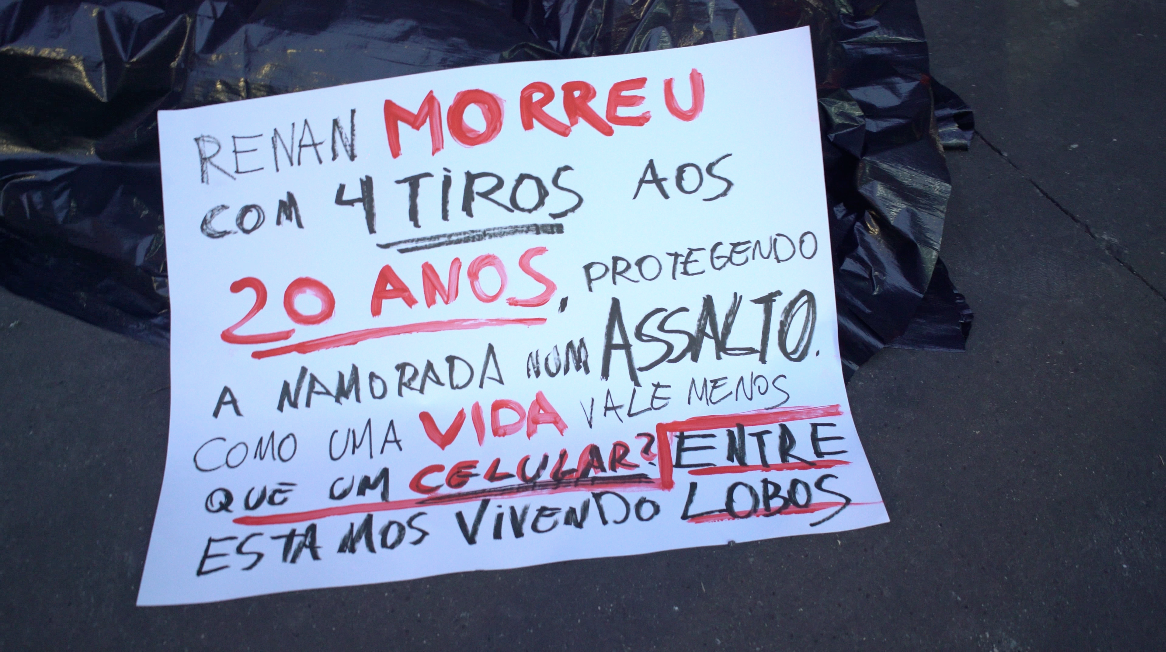 RENAN MORREU
COM 4 TIROS AOS
20 ANOS, PROTEGENDO
A NAMORADA NUM ASSALTO.
COMO UMA VIDA VALE MENOS
QUE UM CELULAR? ENTRE
ESTAMOS VIVENDO LOBOS